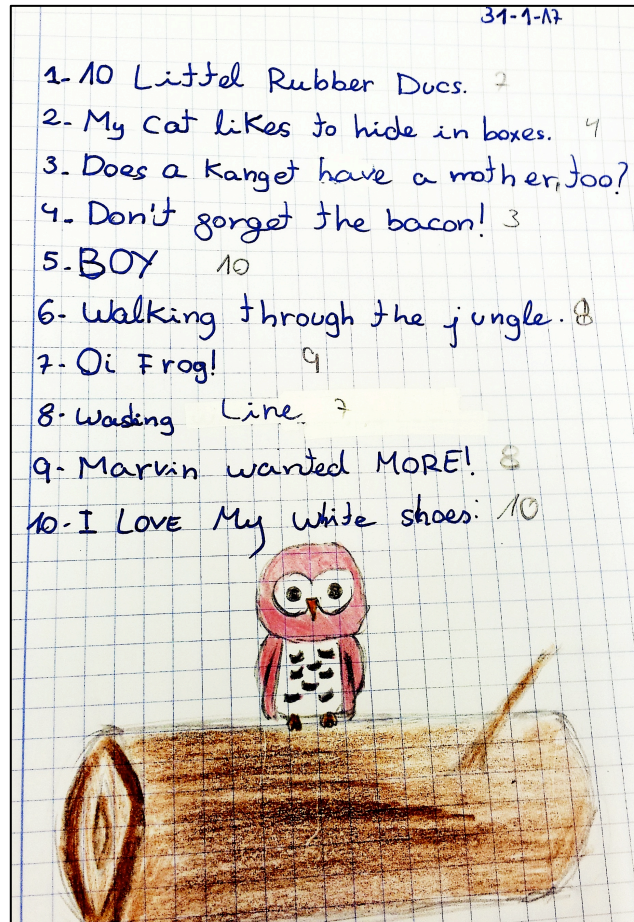 31-1-17
1- 10 Littel Rubber Ducs. 7
2- My cat likes to hide in boxes. 4
3- Does a Kanget have a mother, too?
4- Don't gorget the bacon! 3
5- BOY 10
6- Walking through the jungle. 8
7- Oi Frog! 9
8- Wasing Line. 7
9- Marvin wanted MORE! 8
10- I LOVE My white shoes: 10